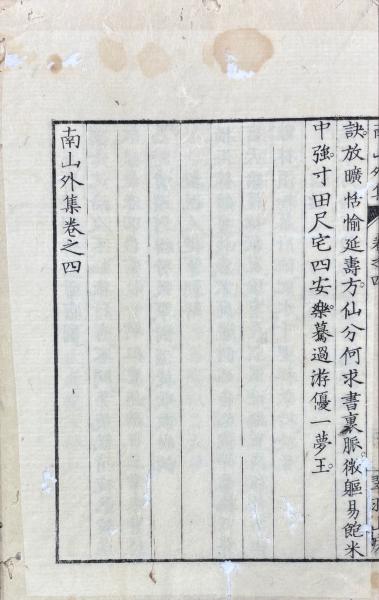 訣。放曠恬愉延壽方。仙分何求書裏脈。微軀易飽米
中強。寸田尺宅四安樂。驀過游優一夢王。
南山外集卷之四